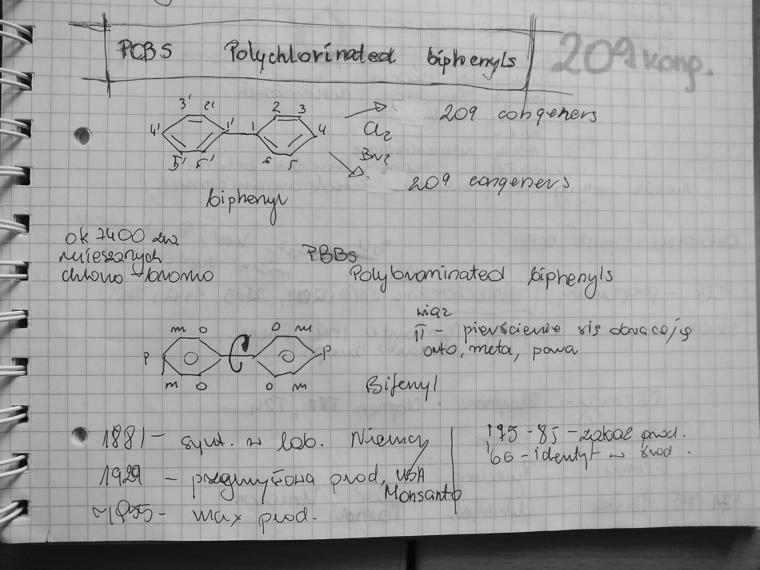 PCBs Polychlorinated biphenyls
209 kong.
3' 2'
2 3
4' 1' 1 4
5' 6'
6 5
Cl2
Br2
209 congeners
209 congeners
biphenyl
ok 1400 dla
mieszanych
chloro-bromo
PBBs
Polybrominated biphenyls
m o o m
p p
m o o m
wiąz
π - pierścienie się obracają
orto, meta, para
Bifenyl
1881 - synt. w lab. Niemcy
1929 - przemysłowa prod, USA
Monsanto
max prod.
'75 - 85 - zakaz prod.
'66 - identyf w środ.